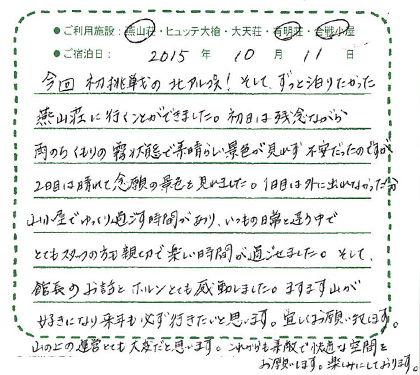 ●ご利用施設:燕山荘・ヒュッテ大槍・大天荘・有明荘・合戦小屋
●ご宿泊日: 2015 年 10 月 11 日
今回 初挑戦の北アルプス! そして、ずっと泊りたかった
燕山荘に行くことができました。初日は残念ながら
雨のちくもりの霧状態で素晴らしい景色が見れず 不安だったのですが
2日目は晴れて念願の景色を見れました。1日目は外に出れなかった分
山小屋でゆっくり過ごす時間があり、いつもの日常と違う中で
とてもスタッフの方も親切で楽しい時間が過ごせました。そして、
館長のお話とホルンとても感動しました。ますます山が
好きになり来年も必ず行きたいと思います。宜しくお願い致します。
山の上の運営とても大変だと思います。これからも素敵で快適な空間を
お願いします。楽しみにしております。